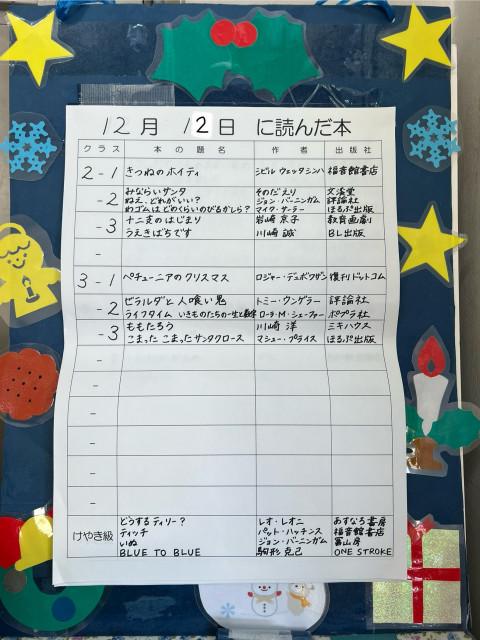 12月 12日 に読んだ本
クラス 本の題名 作者 出版社
2-1 きつねのホイティ シビル ウェッタシンハ 福音館書店
-2 みならいサンタ そのだ えり 文溪堂
ねえ、どれがいい? ジョン・バーニンガム 評論社
わゴムはどのくらいのびるかしら? マイク・サーラー ほるぷ出版
-3 十二支のはじまり 岩崎 京子 教育画劇
うえきばちです 川端 誠 BL出版
3-1 ペチューニアのクリスマス ロジャー・デュボワザン 復刊ドットコム
-2 ゼラルダと人喰い鬼 トミー・ウンゲラー 評論社
ライフタイム いきものたちの一生と数字 ローラ・M・シェーファー ポプラ社
-3 ももたろう 川崎 洋 ミキハウス
こまった こまった サンタクロース マシュー・プライス ほるぷ出版
-
-
-
-
-
-
けやき級 どうするティリー? レオ・レオニ あすなろ書房
ティッチ パット・ハッチンス 福音館書店
いぬ ジョン・バーニンガム 冨山房
BLUE TO BLUE 駒形 克己 ONE STROKE